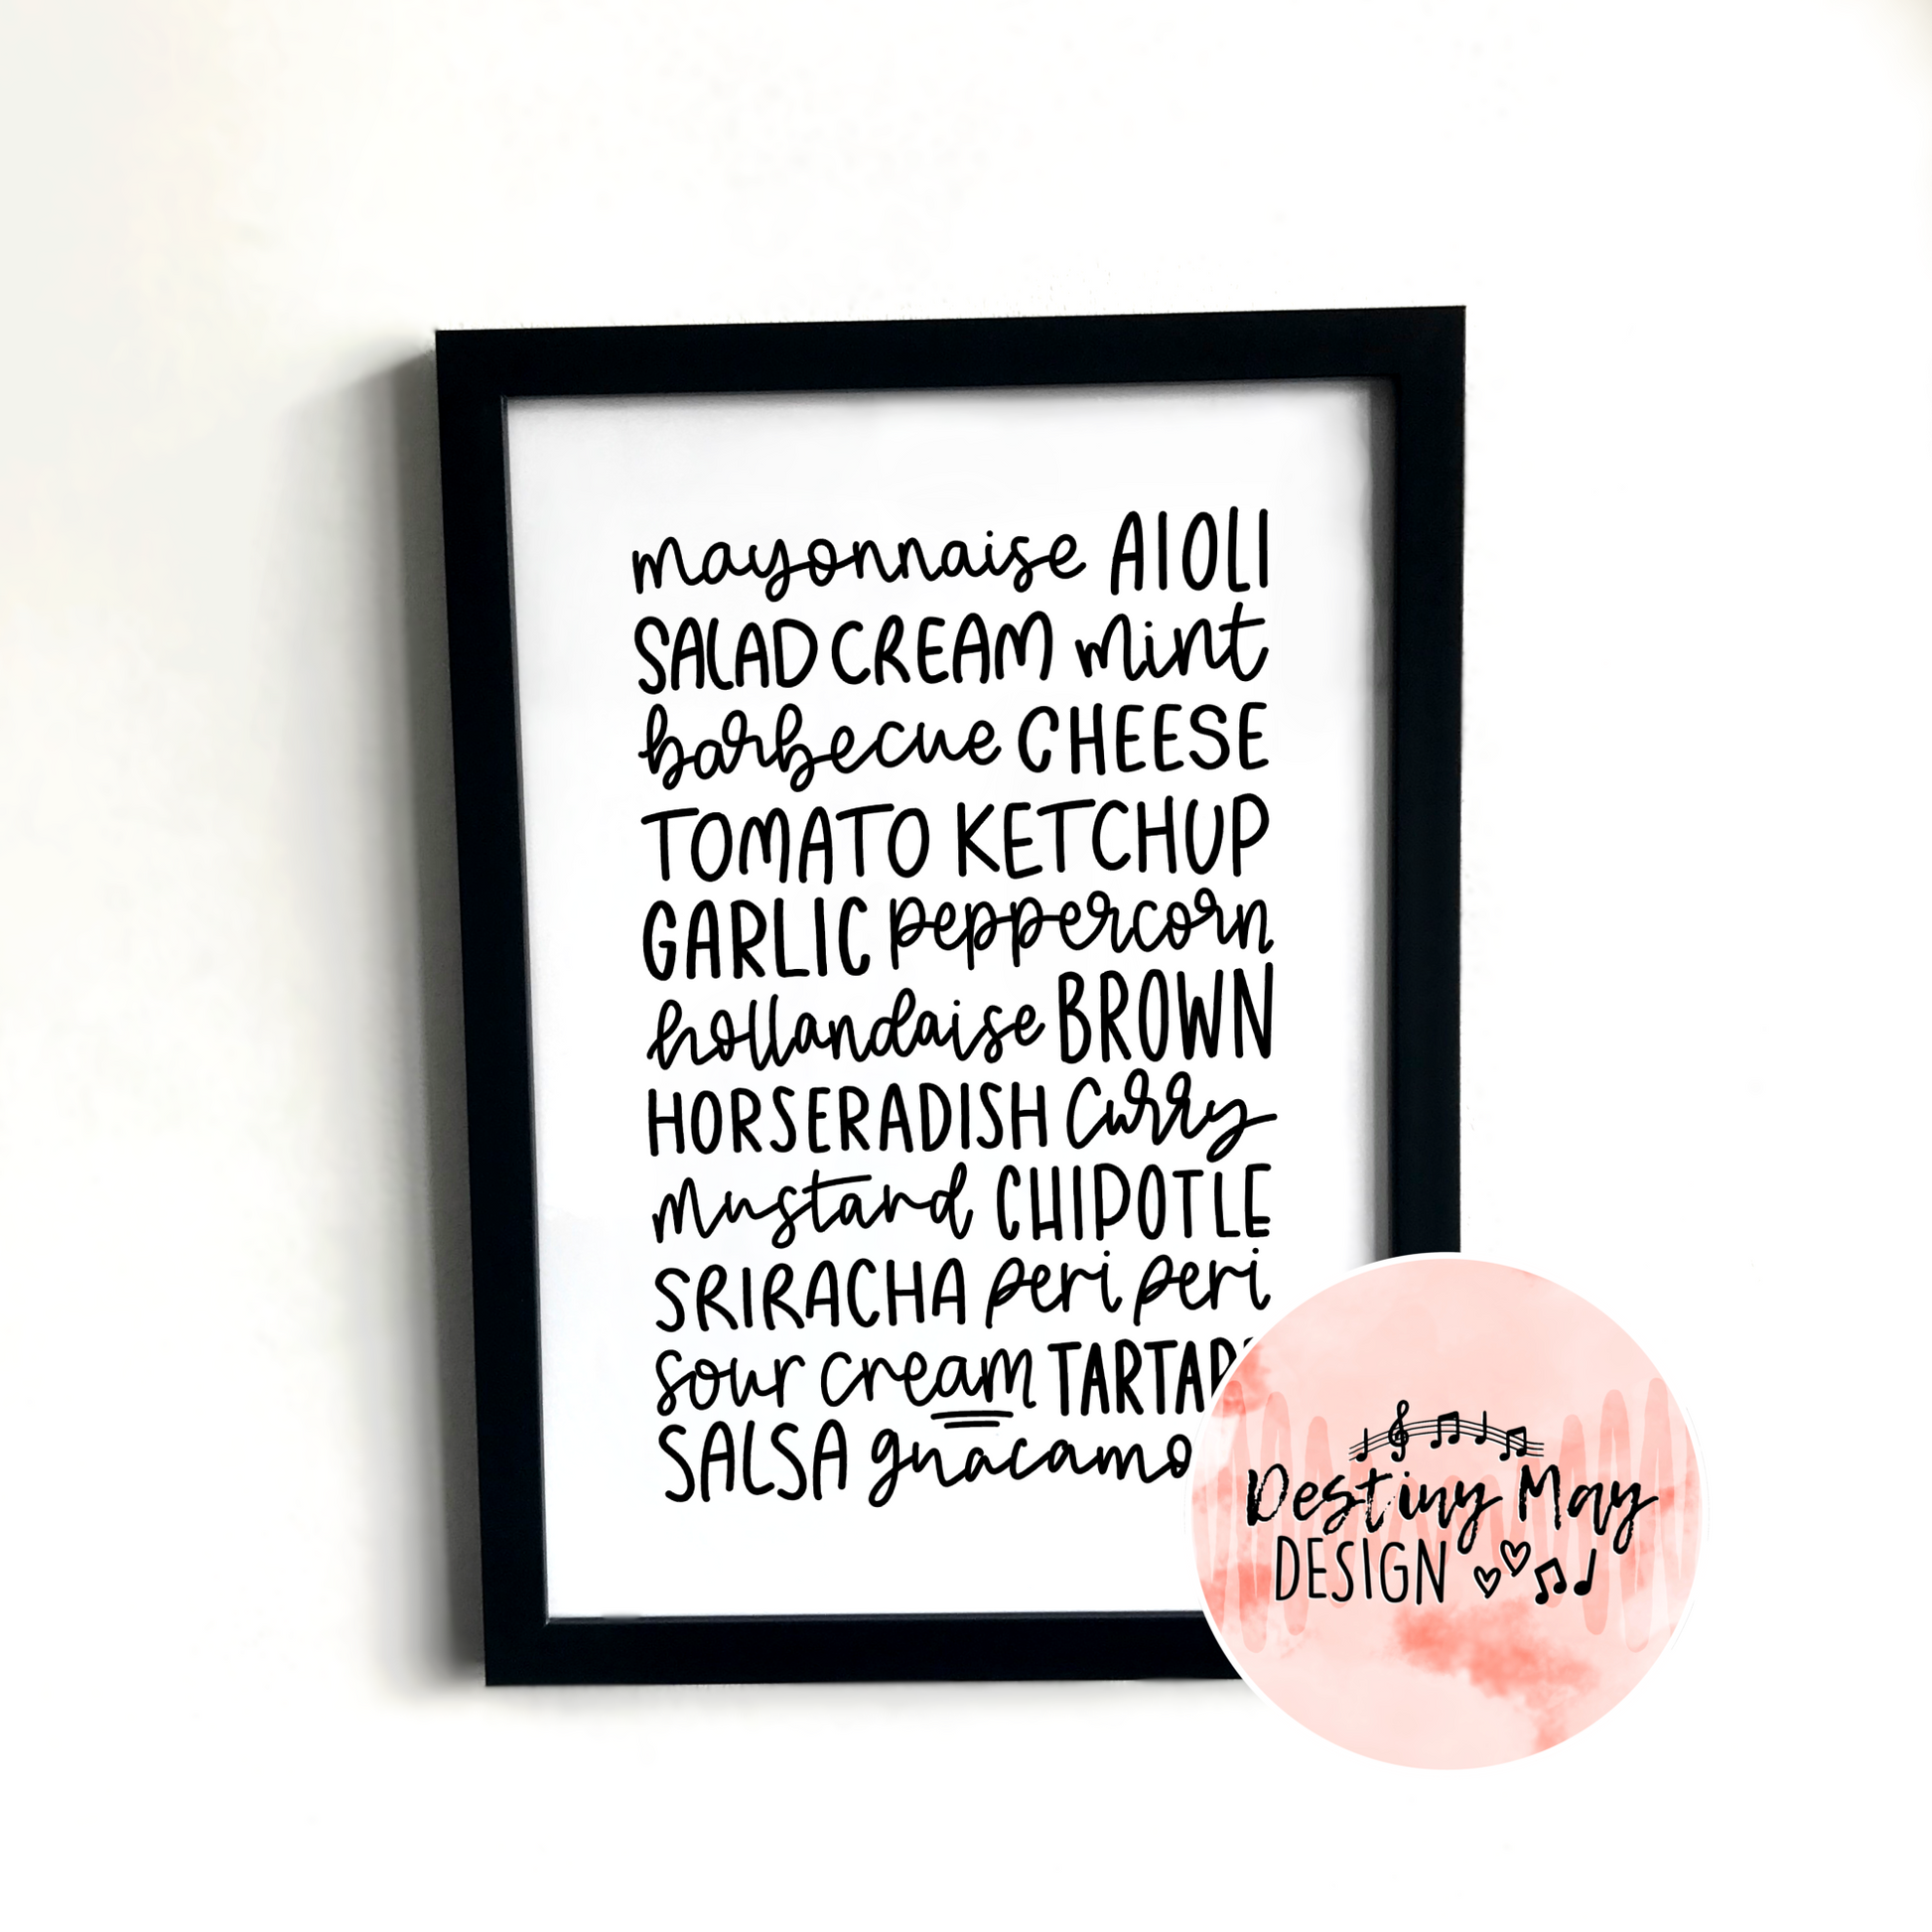 mayonnaise AIOLI
SALAD CREAM mint
barbecue CHEESE
TOMATO KETCHUP
GARLIC peppercorn
hollandaise BROWN
HORSERADISH Curry
Mustard CHIPOTLE
SRIRACHA peri peri
sour cream
SALSA
Destiny May
DESIGN